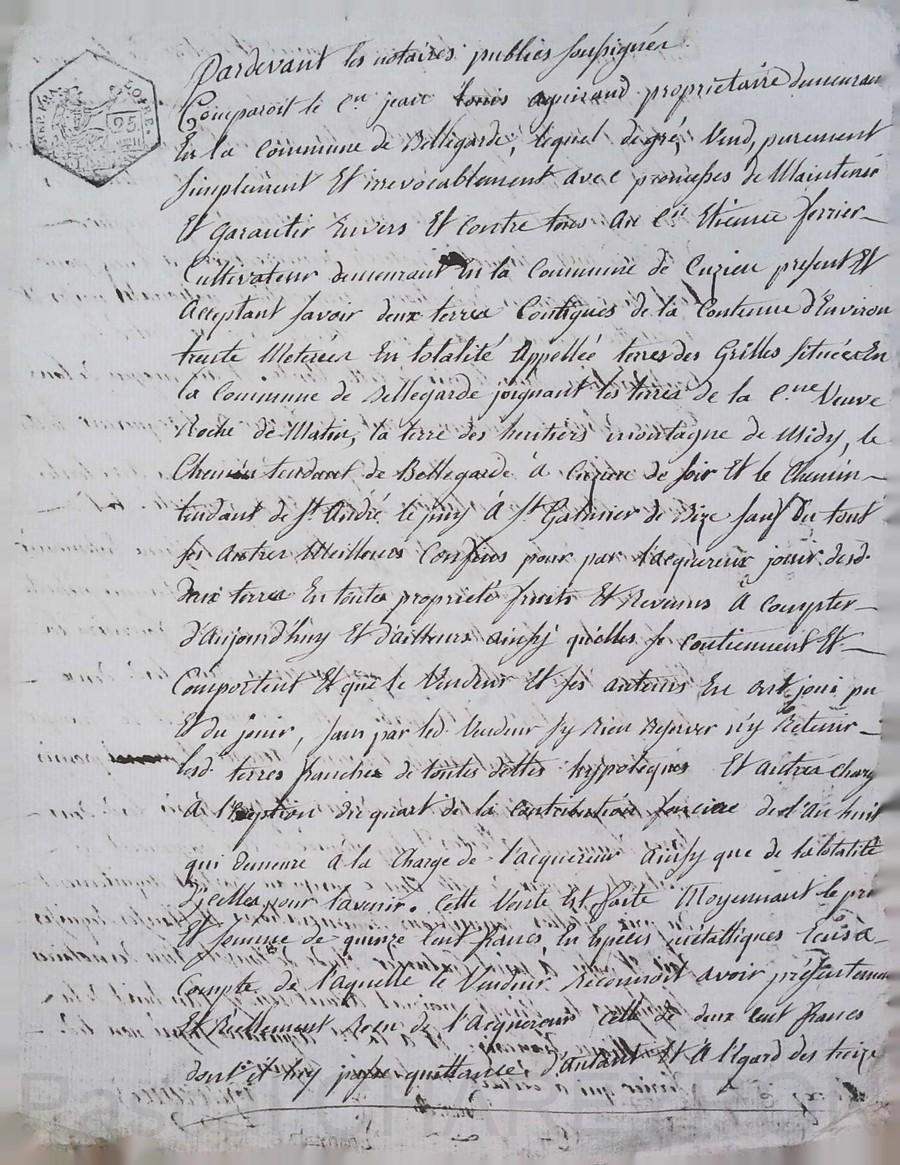 Pardevant les notaires publics soussignés
Comparoit le C.en jean louis aguiraud propriétaire demeuran
En la Commune de Bellegarde, lequel de gré, Vend, purement
simplement Et irrevocablement avec promesses de Maintenir
Et garantir Envers Et contre tous Au C.en Etienne ferrier
Cultivateur demeurant En la Commune de Cuzieu présent Et
Acceptant savoir deux terres Contigues de la Contenue d'Environ
trente Meterées En totalité Appellée terres des Grilles située En
la Commune de Bellegarde joignant les terres de la C.ne Veuve
Roche de Matin, la terre des heritiers montagne de Midy, le
Chemin tendant de Bellegarde à Cuzieu de soir Et le Chemin
tendant de St André le puy À St Galmier de Bize sauf Du tout
ses Autres Meilleurs Confins pour par l'acquereur jouir desd.
Deux terres En toutes proprieté fruits Et Revenus A Compter
d'Aujourd'huy Et d'ailleurs ainsy qu'elles se Contiennent Et
Comportent Et que le Vendeur Et ses auteurs En ont joui pu
Et du jouir, sans par led. Vendeur sy Rien Reserver n'y Retenir
lesd. terres franches de toutes dettes hypoteques Et autres Charg
A l'Exeption du quart de la Contribution fonciere de l'An huit
qui Demeure à la Charge de l'acquereur Ainsy que de la totalité
D'jcelles pour l'avenir. Cette Vente Est faite Moyennant le pri
Et somme de quinze Cent francs En Especes métalliques Ecus à
Compte de l'aquelle le Vendeur Reconnoit avoir présenteme
Et Reellement Receu de l'Acquereur Celle de deux Cent francs
dont il luy passe quittance d'autant Et A l'égard des treize